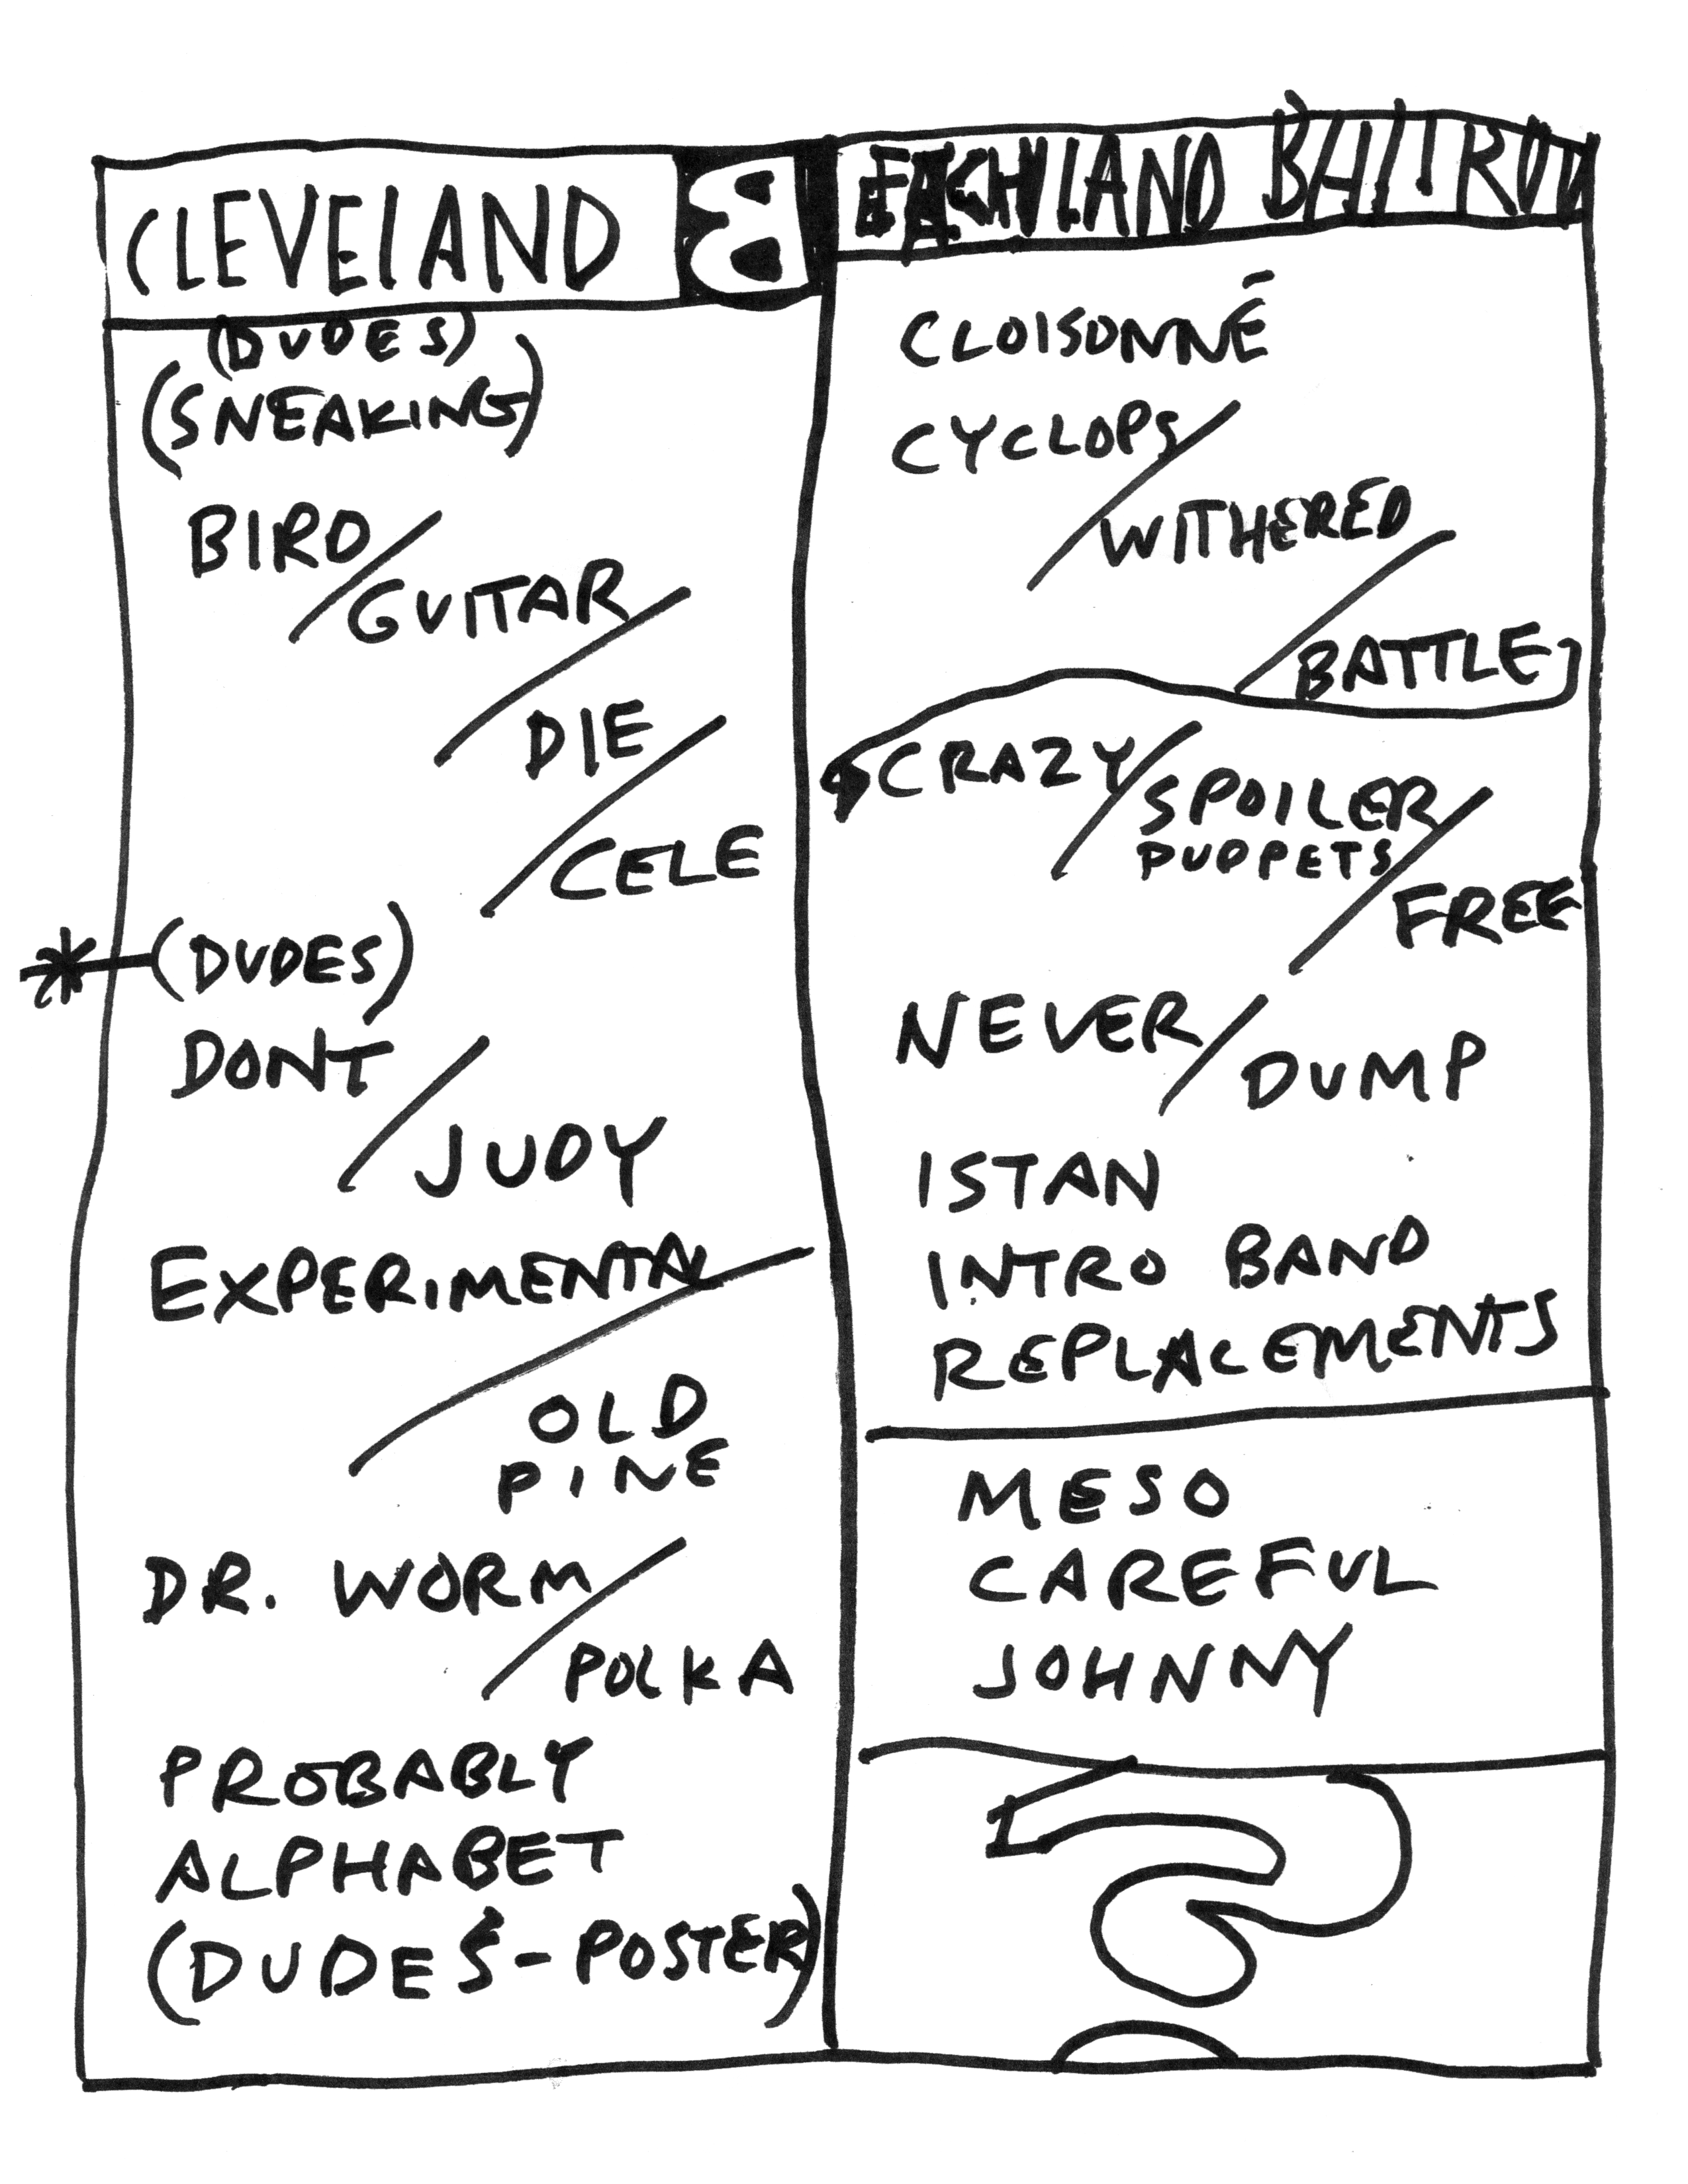 CLEVELAND 8
(DUDES)
(SNEAKING)
BIRD/
GUITAR/
DIE/
CELE
*-(DUDES)
DONT/
JUDY
EXPERIMENTAL/
OLD
PINE
DR. WORM/
POLKA
PROBABLY
ALPHABET
(DUDES-POSTER)
CLOISONNÉ
CYCLOPS/
WITHERED/
BATTLE
CRAZY/
SPOILER/
PUPPETS
FREE
NEVER/DUMP
ISTAN
INTRO BAND
REPLACEMENTS
MESO
CAREFUL
JOHNNY
?